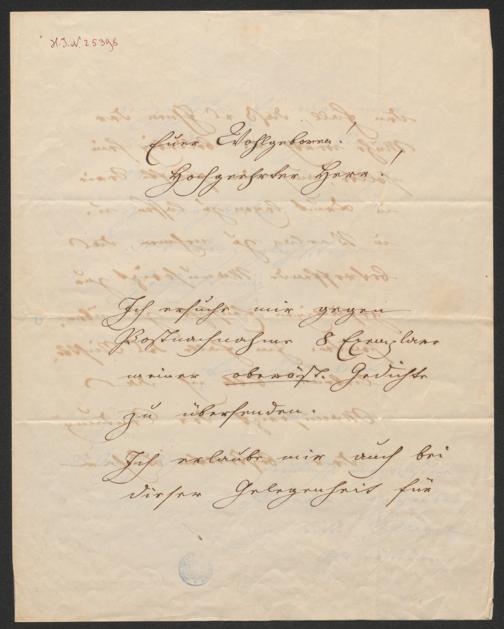 H.I.N. 25398
Euer Wohlgeboren!
Hochgeehrter Herr!
Ich ersuche mir gegen
Postnachnahme 8 Exemplare
meiner oberöst. Gedichte
zu übersenden.
Ich erlaube mir auch bei
dieser Gelegenheit für